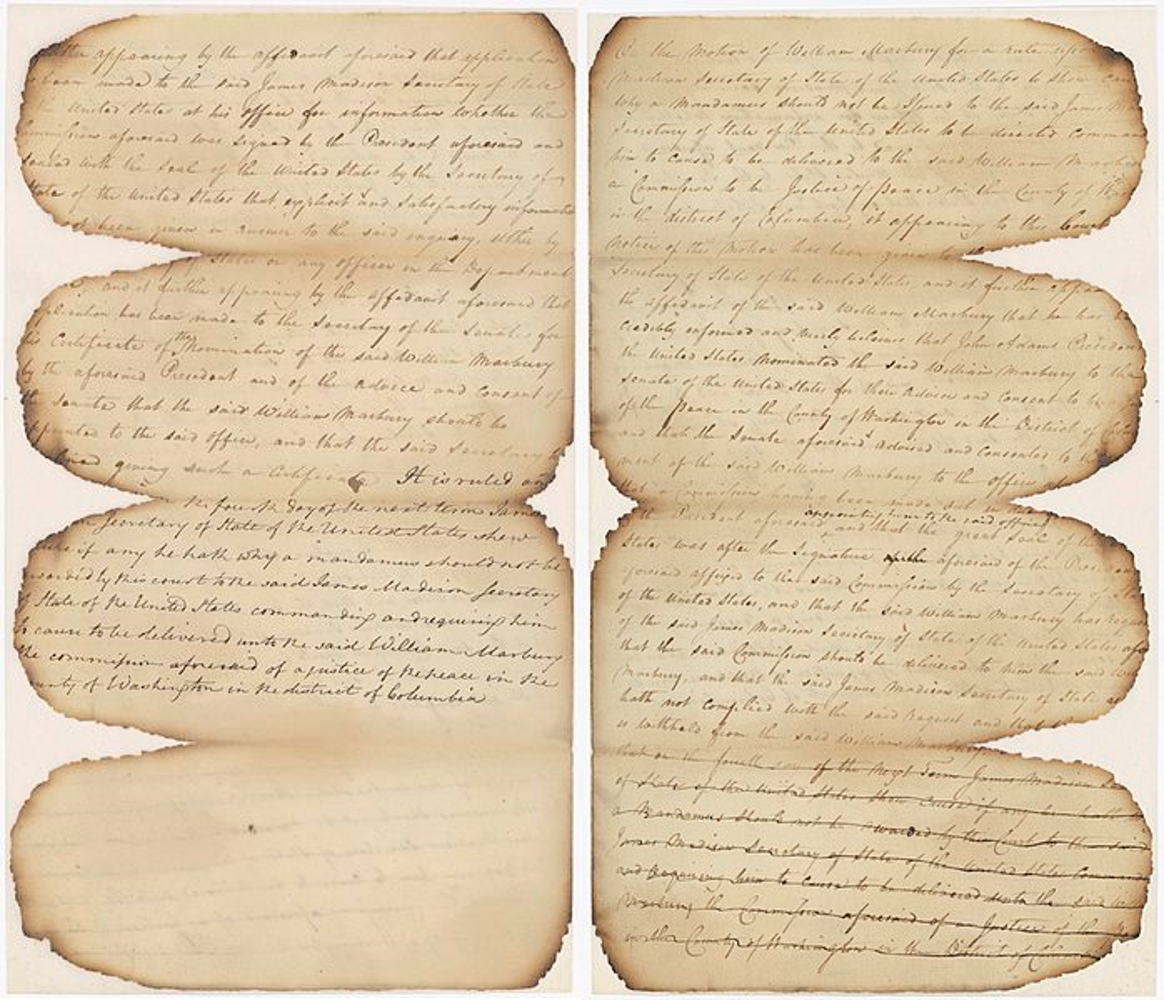 appearing by the affidavit aforesaid that application
been made to the said James Madison Secretary of State
the United States at his office for information whether the
Commission aforesaid was signed by the President aforesaid and
sealed with the Seal of the United States by the Secretary of
State of the United States that explicit and satisfactory informatio
been given in answer to the said enquiry, either by
of State or any officer in the Department
and it further appearing by the affidavit aforesaid that
plication has been made to the Secretary of the Senate for
Certificate of the Nomination of the said William Marbury
by the aforesaid President and of the Advice and Consent of
the Senate that the said William Marbury should be
ppointed to the said office, and that the said Secretary
giving such a Certificate It is ruled
the fourth day of the next term James
Secretary of State of the United States shew
cause if any he hath why a mandamus should not be
awarded by this court to the said James Madison Secretary
of State of the United States commanding and requiring him
to cause to be delivered unto the said William Marbury
the commission aforesaid of a justice of the peace in the
unty of Washington in the district of Columbia
On the Motion of William Marbury for a rule upon
Madison Secretary of State of the United States to Show Cau
why a Mandamus should not be Issued to the said James Ma
Secretary of State of the United States to be directed Command
him to cause to be delivered to the said William Marbur
a Commission to be Justice of peace in the County of Wa
in the district of Columbia, it appearing to this Cour
notice of this Motion has been given to the
Secretary of State of the United States, and it further appea
the affidavit of the said William Marbury that he has b
credibly informed and Verily believes that John Adams President
the United States Nominated the said William Marbury to the
Senate of the United States for their Advice and Consent to be
of the Peace in the County of Washington in the District of
and that the Senate aforesaid advised and consented to the
ment of the said William Marbury to the office
that a Commission having been made out in
the President aforesaid appointing him to the said office and that the great Seal of the
States was after the Signature aforesaid of the President
foresaid affixed to the said Commission by the Secretary of Sta
of the United States, and that the said William Marbury has reque
of the said James Madison Secretary of State of the United States afo
that the said Commission should be delivered to him the said Wil
Marbury, and that the said James Madison Secretary of State
hath not complied with the said Request and that
is withheld from the said William Marbury
that on the fourth day of the Next Term James Madison Se
of State of the United States Shew Cause if any he hath
a Mandamus should not be awarded by this Court to the said
James Madison Secretary of State of the United States Comman
and Requiring him to Cause to be delivered unto the said Wi
Marbury the Commission aforesaid of a Justice of the
in the County of Washington in the District of Columbia